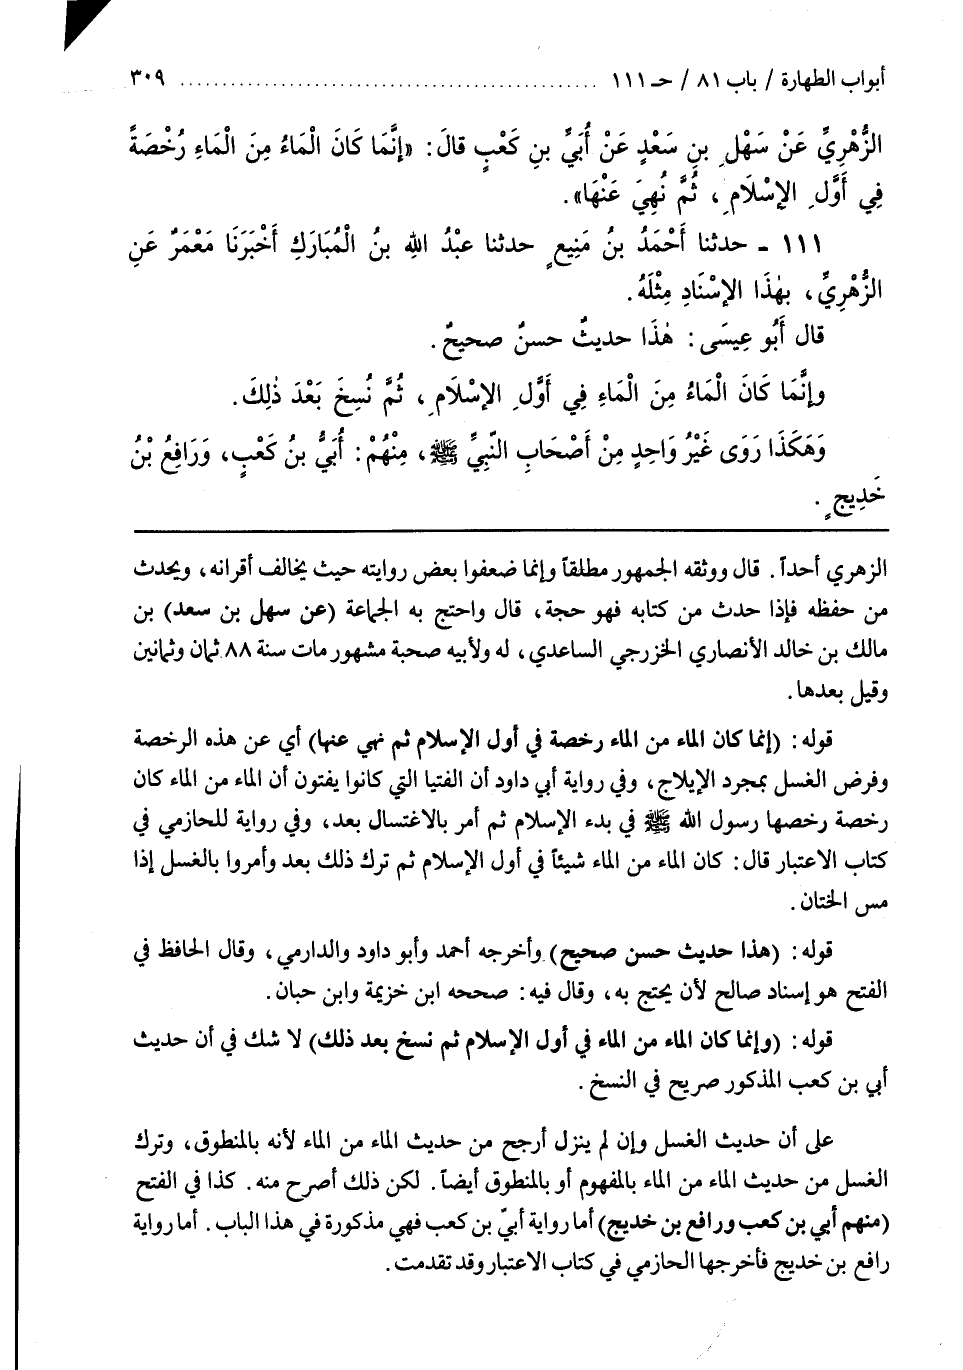 أبواب الطهارة / باب ٨١ / حـ ١١١ ........................................................ ٣٠٩
الزُّهْرِيِّ عَنْ سَهْلِ بنِ سَعْدٍ عَنْ أُبَيِّ بنِ كَعْبٍ قالَ: «إنَّمَا كَانَ الْمَاءُ مِنَ الْمَاءِ رُخْصَةً
فِي أَوَّلِ الإسْلَامِ، ثُمَّ نُهِيَ عَنْهَا».
١١١ - حدثنا أَحْمَدُ بنُ مَنِيعٍ حدثنا عبْدُ اللهِ بنُ الْمُبَارَكِ أَخْبَرَنَا مَعْمَرٌ عَنِ
الزُّهْرِيِّ، بِهٰذَا الإسْنَادِ مِثْلَهُ.
قال أَبُو عِيسَى: هٰذَا حديثٌ حسنٌ صحيحٌ.
وإنَّمَا كَانَ الْمَاءُ مِنَ الْمَاءِ فِي أَوَّلِ الإسْلَامِ، ثُمَّ نُسِخَ بَعْدَ ذٰلِكَ.
وَهَكَذَا رَوَى غَيْرُ وَاحِدٍ مِنْ أَصْحَابِ النَّبِيِّ ﷺ، مِنْهُمْ: أُبَيُّ بنُ كَعْبٍ، وَرَافِعُ بْنُ
خَدِيجٍ.
الزهري أحداً. قال ووثقه الجمهور مطلقاً وإنما ضعفوا بعض روايته حيث يخالف أقرانه، ويحدث
من حفظه فإذا حدث من كتابه فهو حجة، قال واحتج به الجماعة (عن سهل بن سعد) بن
مالك بن خالد الأنصاري الخزرجي الساعدي، له ولأبيه صحبة مشهور مات سنة ٨٨ ثمان وثمانين
وقيل بعدها.
قوله: (إنما كان الماء من الماء رخصة في أول الإسلام ثم نهي عنها) أي عن هذه الرخصة
وفرض الغسل بمجرد الإيلاج، وفي رواية أبي داود أن الفتيا التي كانوا يفتون أن الماء من الماء كان
رخصة رخصها رسول الله ﷺ في بدء الإسلام ثم أمر بالاغتسال بعد، وفي رواية للحازمي في
كتاب الاعتبار قال: كان الماء من الماء شيئاً في أول الإسلام ثم ترك ذلك بعد وأمروا بالغسل إذا
مس الختان.
قوله: (هذا حديث حسن صحيح) وأخرجه أحمد وأبو داود والدارمي، وقال الحافظ في
الفتح هو إسناد صالح لأن يحتج به، وقال فيه: صححه ابن خزيمة وابن حبان.
قوله: (وإنما كان الماء من الماء في أول الإسلام ثم نسخ بعد ذلك) لا شك في أن حديث
أبي بن كعب المذكور صريح في النسخ.
على أن حديث الغسل وإن لم ينزل أرجح من حديث الماء من الماء لأنه بالمنطوق، وترك
الغسل من حديث الماء من الماء بالمفهوم أو بالمنطوق أيضاً. لكن ذلك أصرح منه. كذا في الفتح
(منهم أبي بن كعب ورافع بن خديج) أما رواية أبيّ بن كعب فهي مذكورة في هذا الباب. أما رواية
رافع بن خديج فأخرجها الحازمي في كتاب الاعتبار وقد تقدمت.